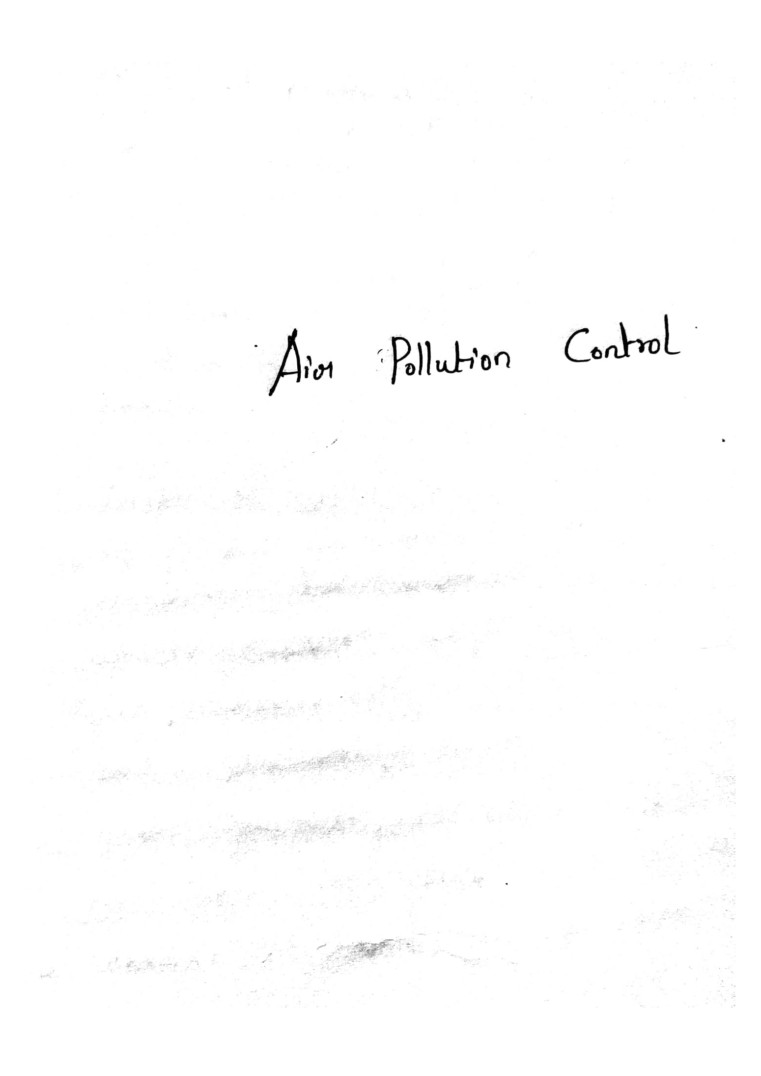 Air Pollution Control